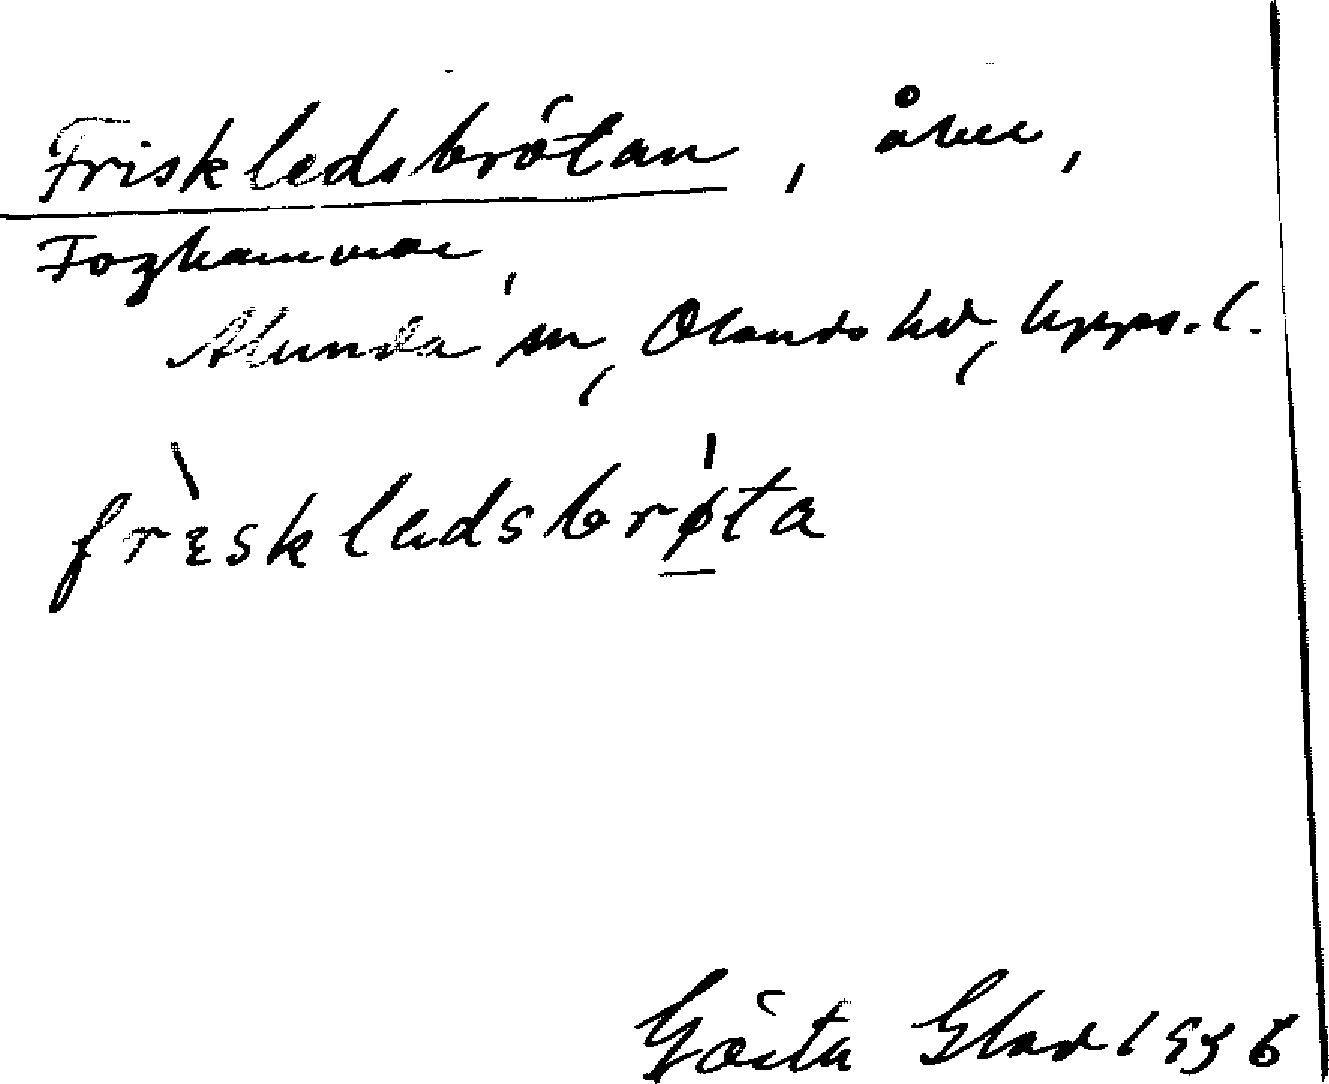 Friskledsbrötan, åker,
Foghammar,
Alunda sn, Olands hd, Upps. l.
frìskledsbrø̀ta
Gösta Glad 1956